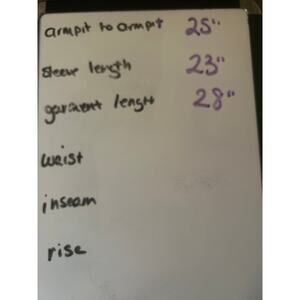 armpit to armpit 25"
sleeve length 23"
garment length 28"
waist
inseam
rise